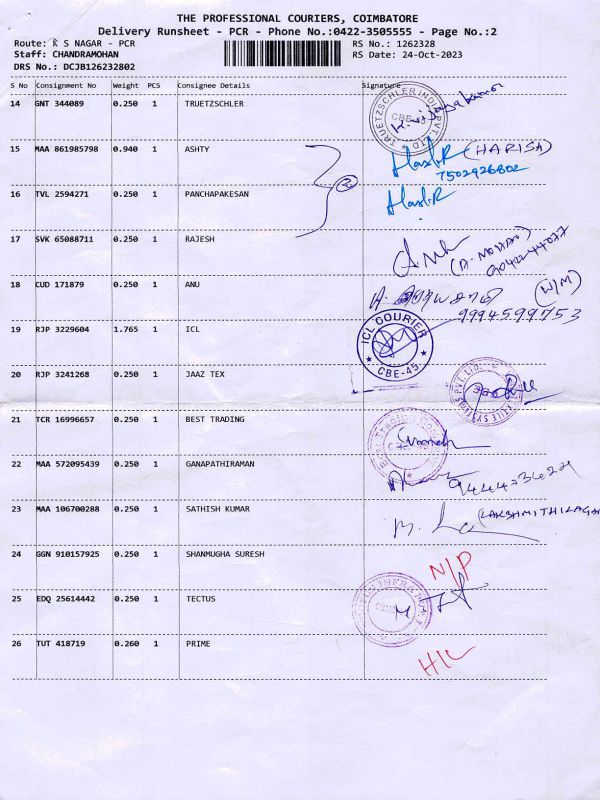 THE PROFESSIONAL COURIERS, COIMBATORE
Delivery Runsheet - PCR - Phone No.:0422-3505555 - Page No.:2
Route: K S NAGAR - PCR RS No.: 1262328
Staff: CHANDRAMOHAN RS Date: 24-Oct-2023
DRS No.: DCJB126232802
S No Consignment No Weight PCS Consignee Details Signature
14 GNT 344089 0.250 1 TRUETZSCHLER
TRUETZSCHLER INDIA PVT. LTD. CBE-45
15 MAA 861985798 0.940 1 ASHTY (HARISH)
7502926802
16 TVL 2594271 0.250 1 PANCHAPAKESAN
17 SVK 65088711 0.250 1 RAJESH
18 CUD 171879 0.250 1 ANU (W/M)
9994599753
19 RJP 3229604 1.765 1 ICL
ICL COURIER CBE-45
20 RJP 3241268 0.250 1 JAAZ TEX
21 TCR 16996657 0.250 1 BEST TRADING
22 MAA 572095439 0.250 1 GANAPATHIRAMAN
23 MAA 106700288 0.250 1 SATHISH KUMAR
24 GGN 910157925 0.250 1 SHANMUGHA SURESH N/P
25 EDQ 25614442 0.250 1 TECTUS
26 TUT 418719 0.260 1 PRIME